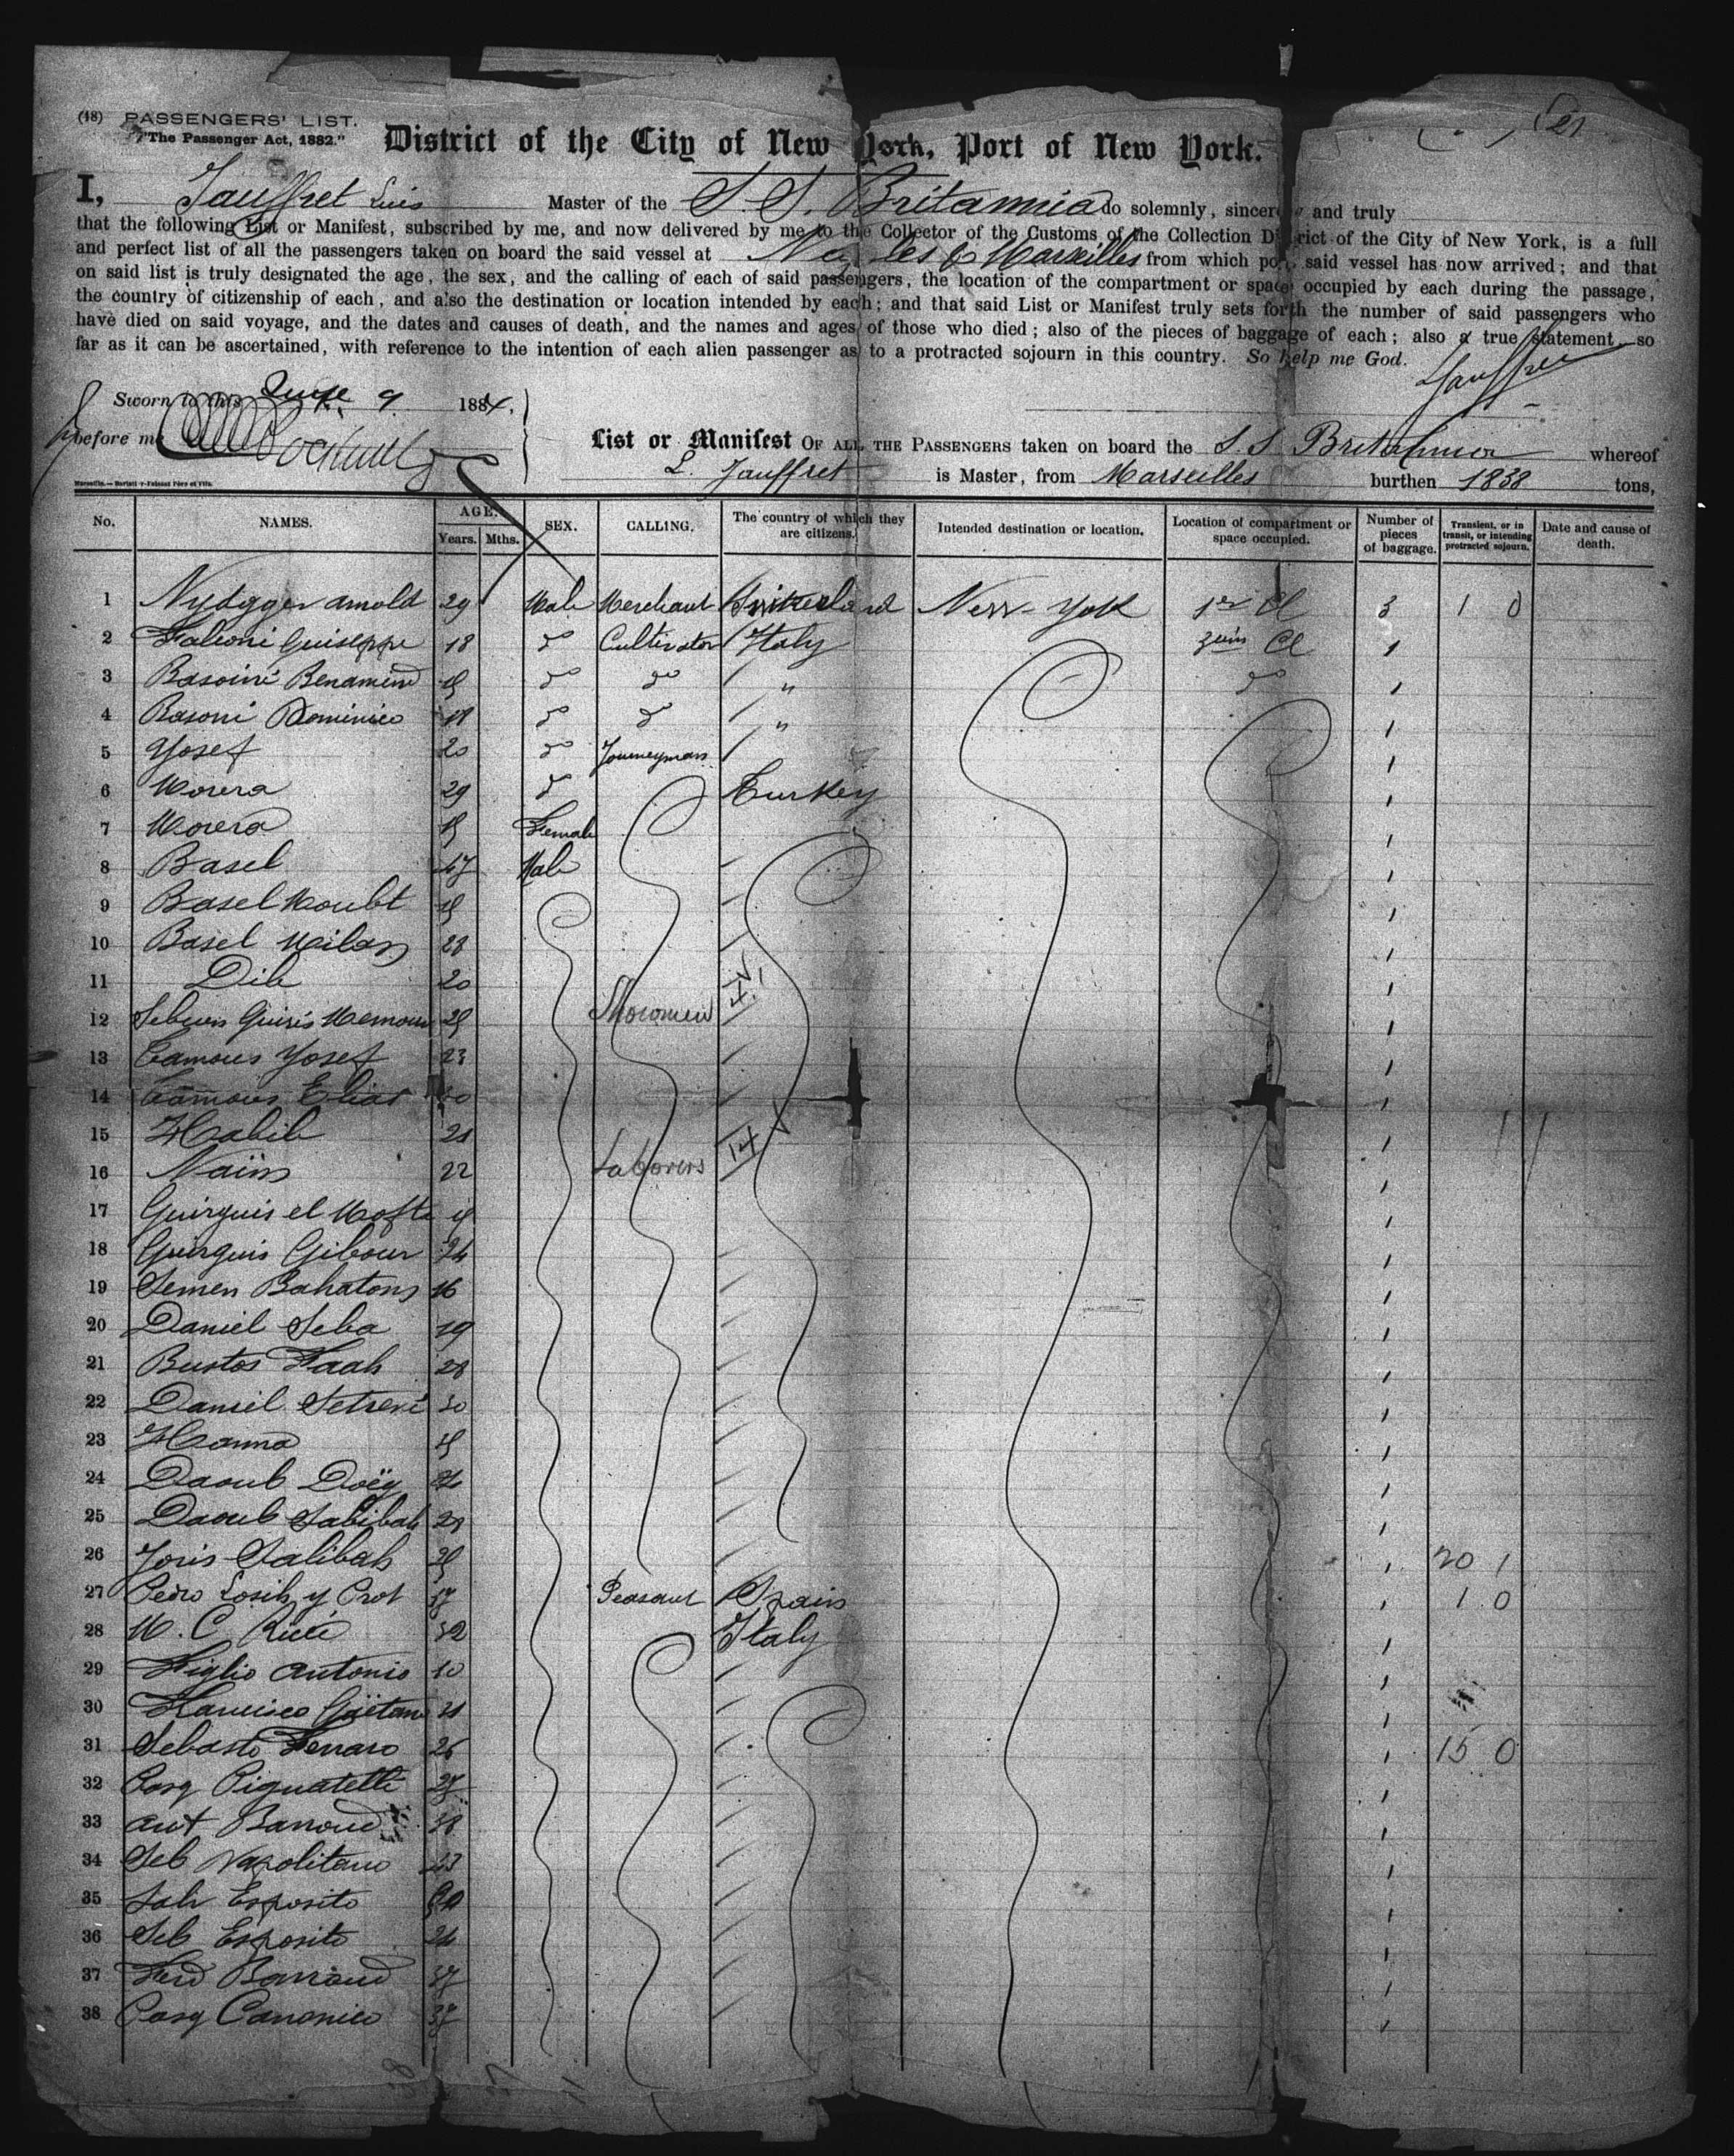 (18) PASSENGERS' LIST.
"The Passenger Act, 1882."
District of the City of New York, Port of New York.
I, Jauffret Luis Master of the S. S. Britannia do solemnly, sincerely and truly
that the following List or Manifest, subscribed by me, and now delivered by me to the Collector of the Customs of the Collection District of the City of New York, is a full
and perfect list of all the passengers taken on board the said vessel at Naples & Marseilles from which port said vessel has now arrived; and that
on said list is truly designated the age, the sex, and the calling of each of said passengers, the location of the compartment or space occupied by each during the passage,
the country of citizenship of each, and also the destination or location intended by each; and that said List or Manifest truly sets forth the number of said passengers who
have died on said voyage, and the dates and causes of death, and the names and ages of those who died; also of the pieces of baggage of each; also a true statement so
far as it can be ascertained, with reference to the intention of each alien passenger as to a protracted sojourn in this country. So help me God.
Jauffret
Sworn to this June 9 1884,
before me
List or Manifest OF ALL THE PASSENGERS taken on board the S. S Britannia whereof
L. Jauffret is Master, from Marseilles burthen 1838 tons,
No. NAMES. AGE. Years. Mths. SEX. CALLING. The country of which they are citizens. Intended destination or location. Location of compartment or space occupied. Number of pieces of baggage. Transient, or in transit, or intending protracted sojourn. Date and cause of death.
1 Nydgger Arnold 29 Male Merchant Switzerland New-York 1re Cl 3 1 0
2 Falconi Guiseppe 18 do Cultivator Italy 3em Cl 1
3 Basoini Benamino do do " do 1
4 Basoni Dominico 18 do do " 1
5 Yosef 20 do Journeyman 1
6 Morera 29 do Turkey 1
7 Morera Female 1
8 Basel 47 Male 1
9 Basel Moubt 1
10 Basel Milan 28 1
11 Dib 20 1
12 Sebuen Guiris Memoun Showmen 1
13 Camous Yosef 23 1
14 Camous Elias 1
15 Habib 21 1
16 Naim 22 Laborers 14 1
17 Guirguis el Mofte 1
18 Guirguis Gibour 24 1
19 Semen Bahatons 16 1
20 Daniel Seba 19 1
21 Bustos Faah 28 1
22 Daniel Setreni 30 1
23 Hanna 1
24 Daoub Doëy 1
25 Daoub Sabibah 1
26 Joris Salibah 1 20 1
27 Pedro Losih y Prot 37 Peasant Spain 1 1 0
28 M. C Ricci 32 Italy 1
29 Figlio Antonio 10 1
30 Francisco Gaëtano 21 1
31 Sebasto Ferraro 26 1 15 0
32 Pasq Pignatelli 1
33 Ant Barroud 38 1
34 Seb Napolitano 23 1
35 Salv Esposito 1
36 Seb Esposito 24 1
37 Ferd Barraud 37 1
38 Pasq Canonico 37 1